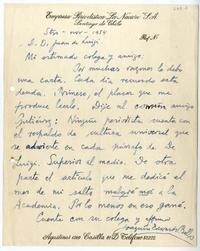 Empresa Periodística "La Nación" S.A.
Santiago de Chile
Stgo - nov - 1954
Ref. Nº
D. D. Juan de Luigi.
Mi estimado colega y amigo.
Por muchas razones le debo
una carta. Cada día recuerdo esta
deuda. Primero el placer que me
produce leerlo. Dije al común amigo
Gutiérrez: Ningún periodista cuenta con
el respaldo de cultura universal que
se advierte en cada párrafo de De
Luigi. Superior al medio. De otra
parte el artículo que me dedicó el
mor de mi salto malgré moi a la
Academia. Por lo menos en eso ganó.
Cuente con su colega y afmo
Joaquín Edwards Bello
Agustinas 1269 Casilla 81-D Teléfono 82222